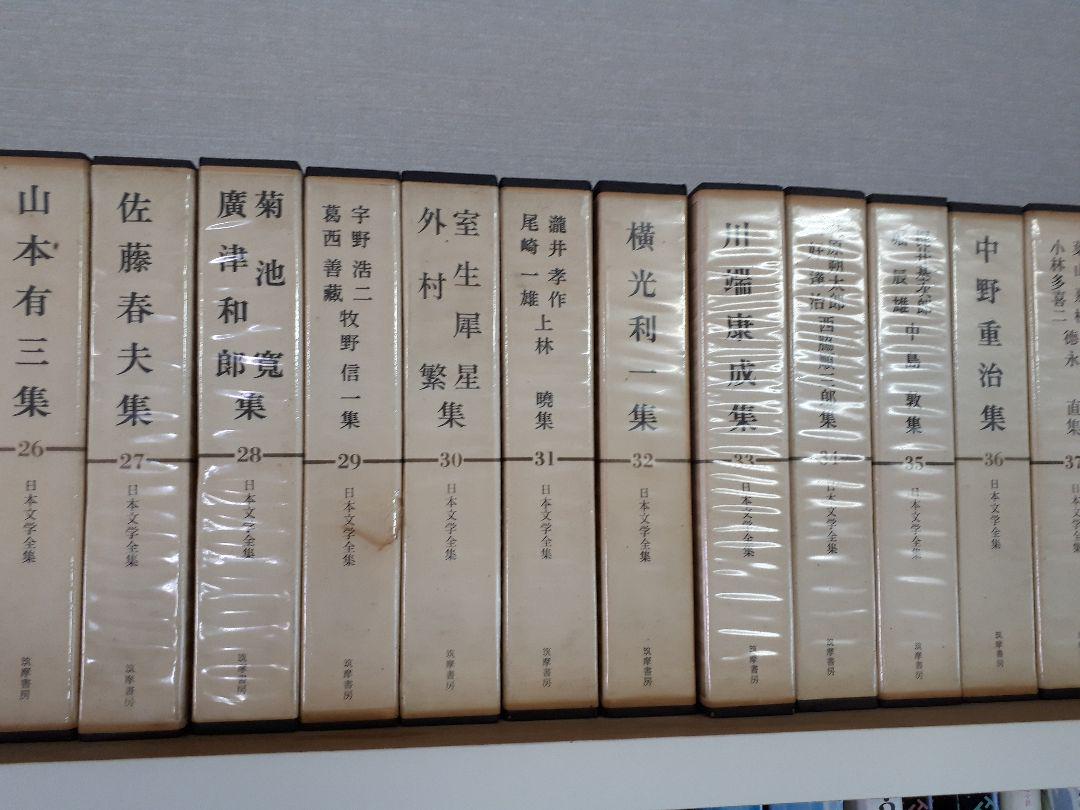 山本有三集
26
日本文学全集
筑摩書房
佐藤春夫集
27
日本文学全集
筑摩書房
菊池寛
廣津和郎集
28
日本文学全集
筑摩書房
宇野浩二
葛西善藏
牧野信一集
29
日本文学全集
筑摩書房
室生犀星
外村繁集
30
日本文学全集
筑摩書房
瀧井孝作
尾崎一雄
上林曉集
31
日本文学全集
筑摩書房
橫光利一集
32
日本文学全集
筑摩書房
川端康成集
33
日本文学全集
筑摩書房
西脇順三郎集
34
日本文学全集
筑摩書房
堀辰雄
中島敦集
35
日本文学全集
筑摩書房
中野重治集
36
日本文学全集
筑摩書房
小林多喜二
德永直集
37
日本文学全集